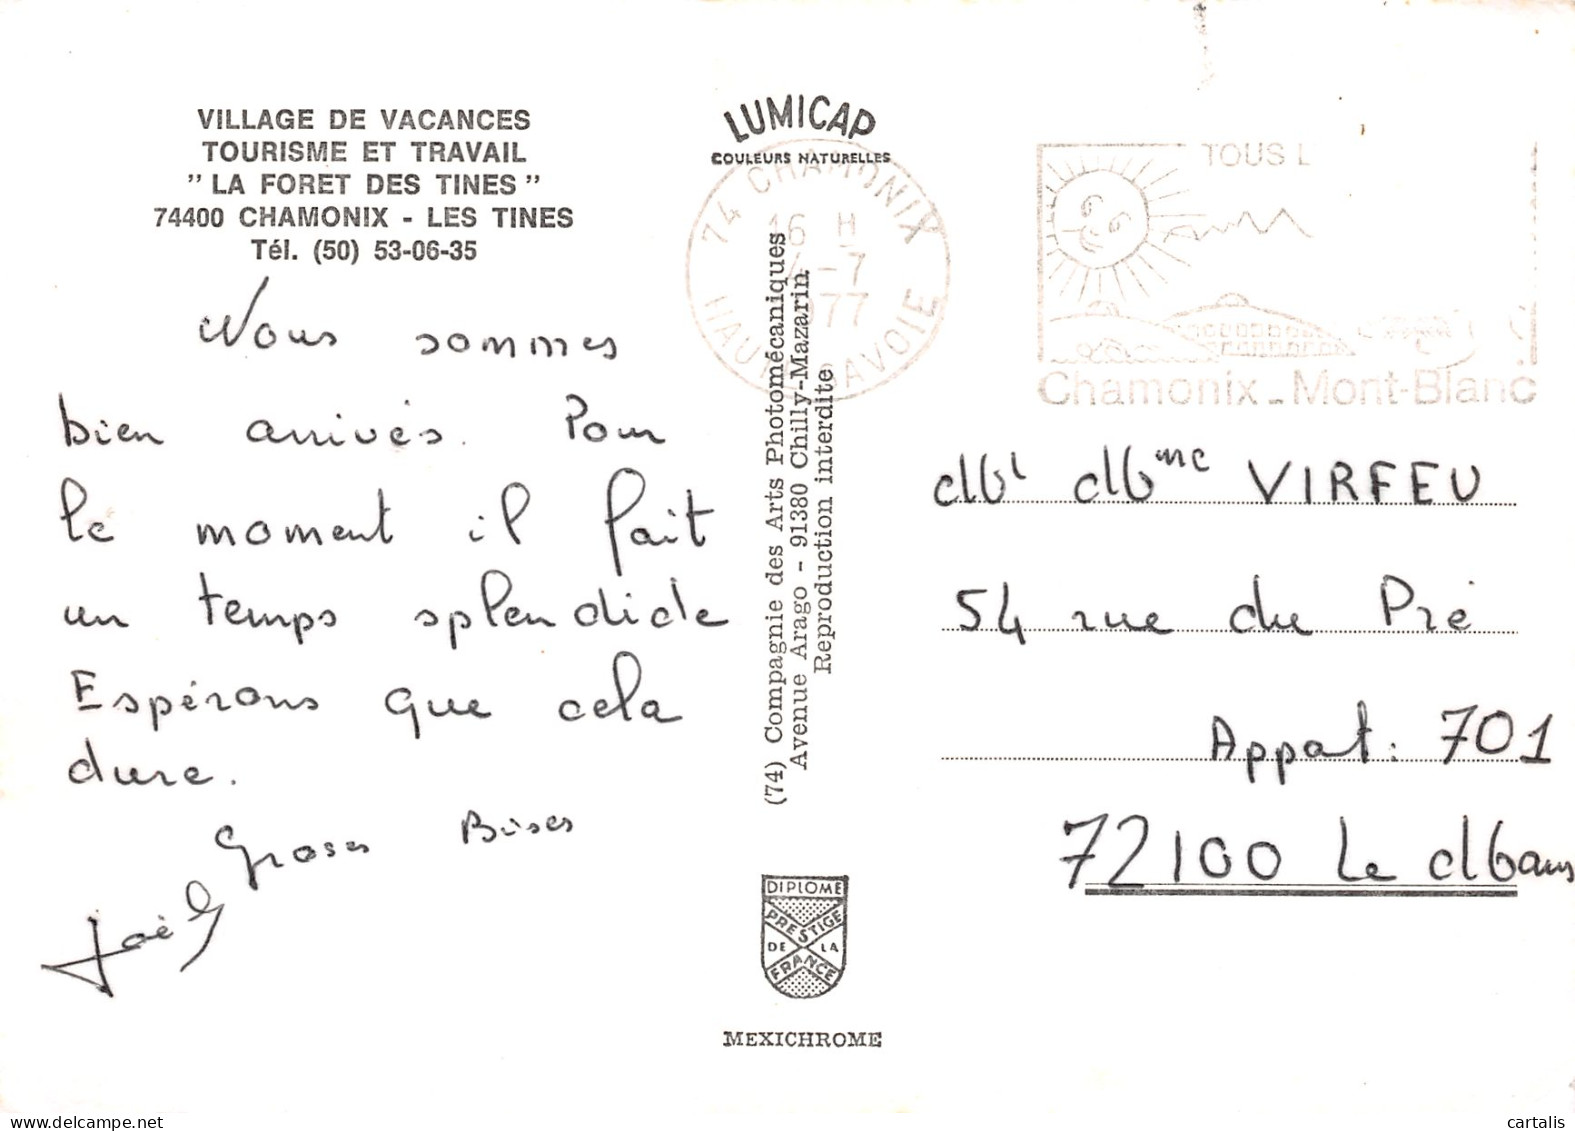 VILLAGE DE VACANCES
TOURISME ET TRAVAIL
" LA FORET DES TINES "
74400 CHAMONIX - LES TINES
Tél. (50) 53-06-35
Nous sommes
bien arrivés. Pour
le moment il fait
un temps splendide
Espérons que cela
dure.
Groses Bises
Joël
LUMICAP
COULEURS NATURELLES
74 CHAMONIX
16 H
4-7
1977
HAUTE SAVOIE
(74) Compagnie des Arts Photomécaniques
Avenue Arago - 91380 Chilly-Mazarin
Reproduction interdite
DIPLOME
PRESTIGE
DE LA
FRANCE
MEXICHROME
TOUS L
Chamonix - Mont-Blanc
Mr Mme VIRFEU
54 rue du Pré
Appat: 701
72100 Le Mans
cartalis